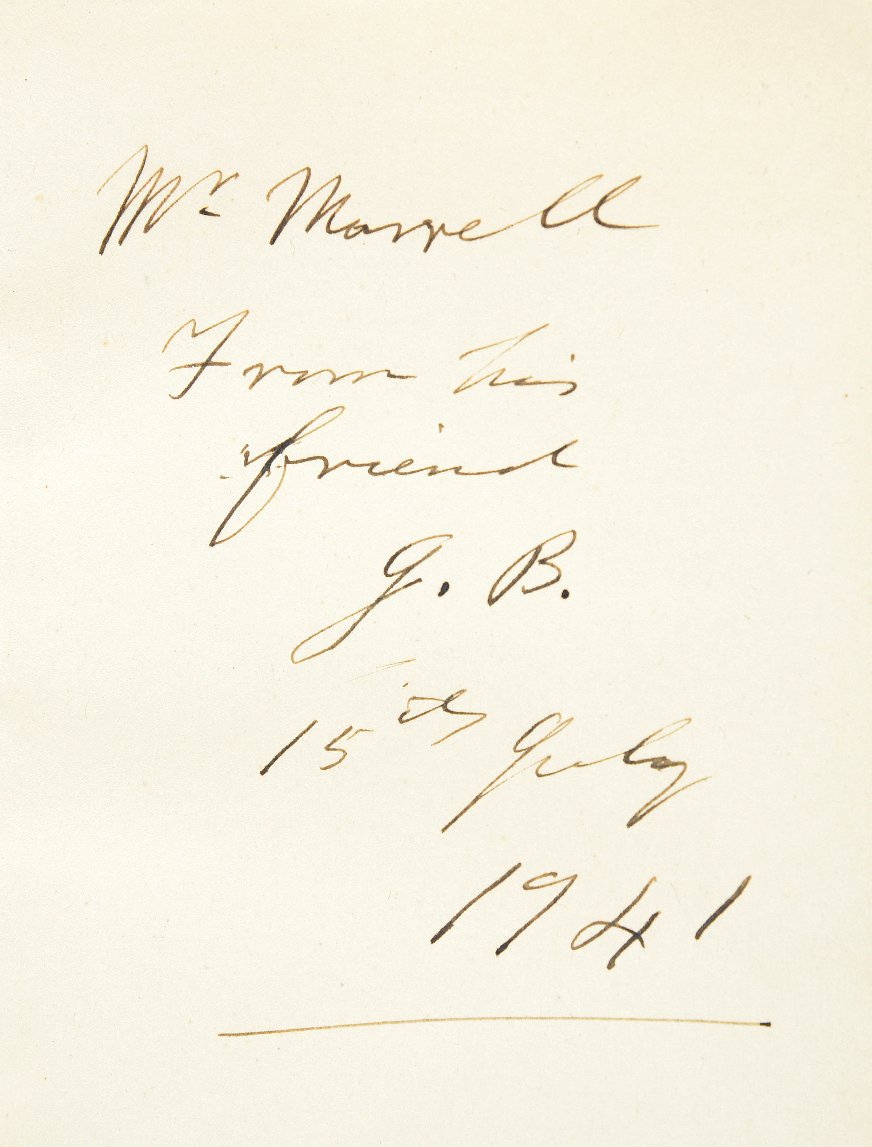 Mr Maxwell
From his
friend
G. B.
15th July
1941